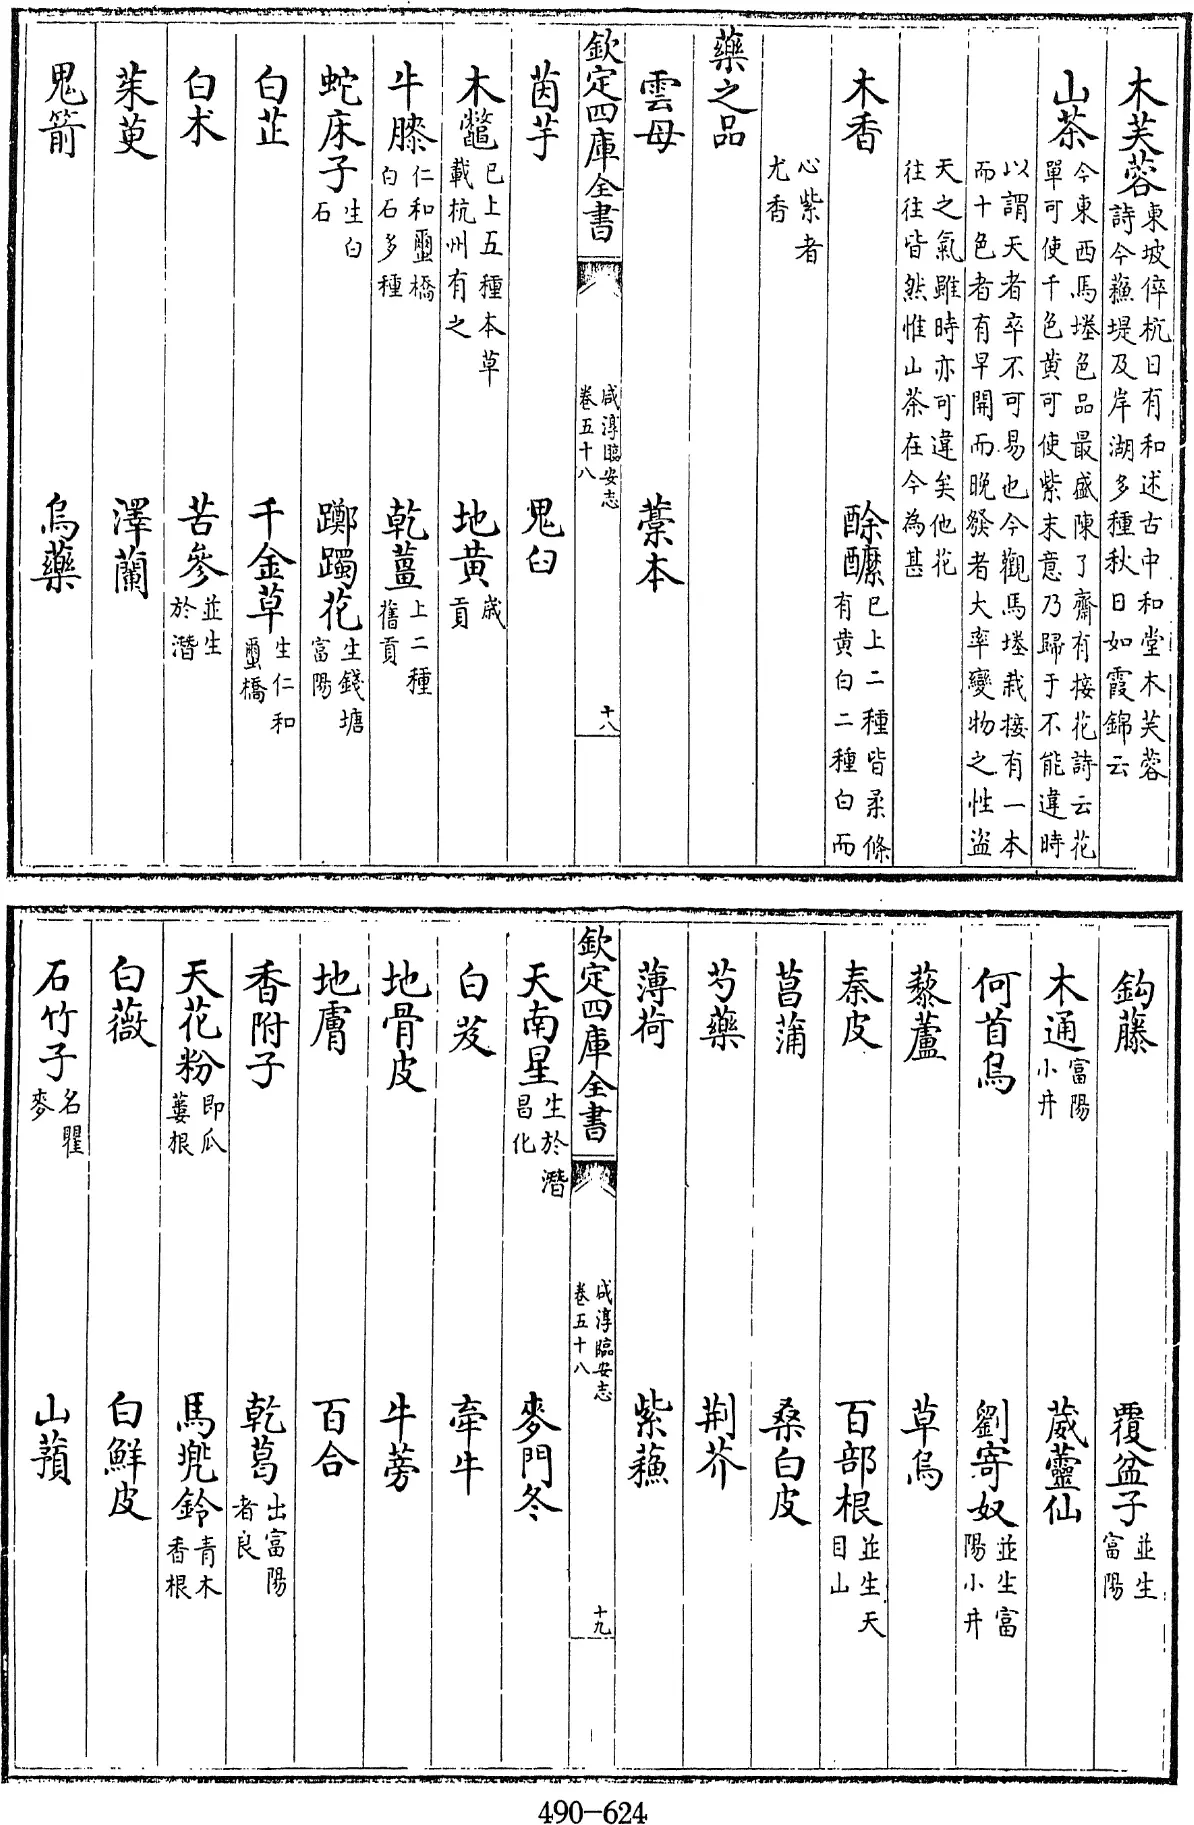 木芙蓉東坡倅杭日有和述古中和堂木芙蓉
詩今蘓堤及岸湖多種秋日如霞錦云
山茶今東西馬塍色品最盛陳了齋有接花詩云花
單可使千色黄可使紫末意乃歸于不能違時
以謂天者卒不可易也今觀馬塍栽接有一本
而十色者有早開而晚發者大率變物之性盗
天之氣雖時亦可違矣他花
往往皆然惟山茶在今為甚
木香
酴醿已上二種皆柔條
有黄白二種白而
心紫者
尤香
藥之品
雲母
藁本
欽定四庫全書
咸淳臨安志
卷五十八
十八
茵芋
鬼臼
木鼈已上五種本草
載杭州有之
地黄歲
貢
牛膝仁和臨橋
白石多種
乾薑上二種
舊貢
蛇床子生白
石
躑躅花生錢塘
富陽
白芷
千金草生仁和
橋
白术
苦參並生
於潛
茱萸
澤蘭
鬼箭
烏藥
鈎藤
覆盆子並生
富陽
木通富陽
小井
葳靈仙
何首烏
劉寄奴並生富
陽小井
藜蘆
草烏
秦皮
百部根並生天
目山
菖蒲
桑白皮
芍藥
荆芥
薄荷
紫蘓
欽定四庫全書
咸淳臨安志
卷五十八
十九
天南星生於潛
昌化
麥門冬
白芨
牽牛
地骨皮
牛蒡
地膚
百合
香附子
乾葛出富陽
者良
天花粉即瓜
蔞根
馬兠鈴青木
香根
白薇
白鮮皮
石竹子名瞿
麥
山蕷
490-624